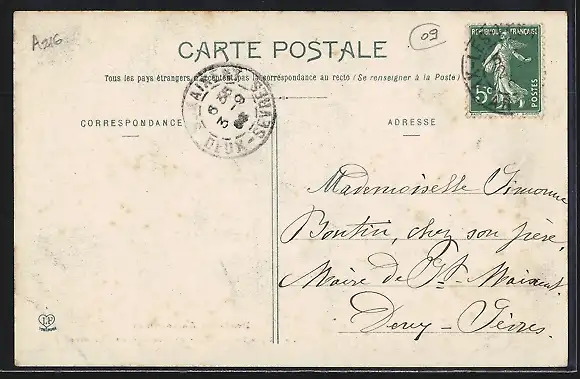 A216
09
CARTE POSTALE
Tous les pays étrangers n'acceptent pas la correspondance au recto (Se renseigner à la Poste)
RÉPUBLIQUE FRANÇAISE
5c
POSTES
DEUX-SÈVRES
CORRESPONDANCE
ADRESSE
Mademoiselle Simonne
Boutin, chez son père,
Maire de St Maixent
Deux-Sèvres